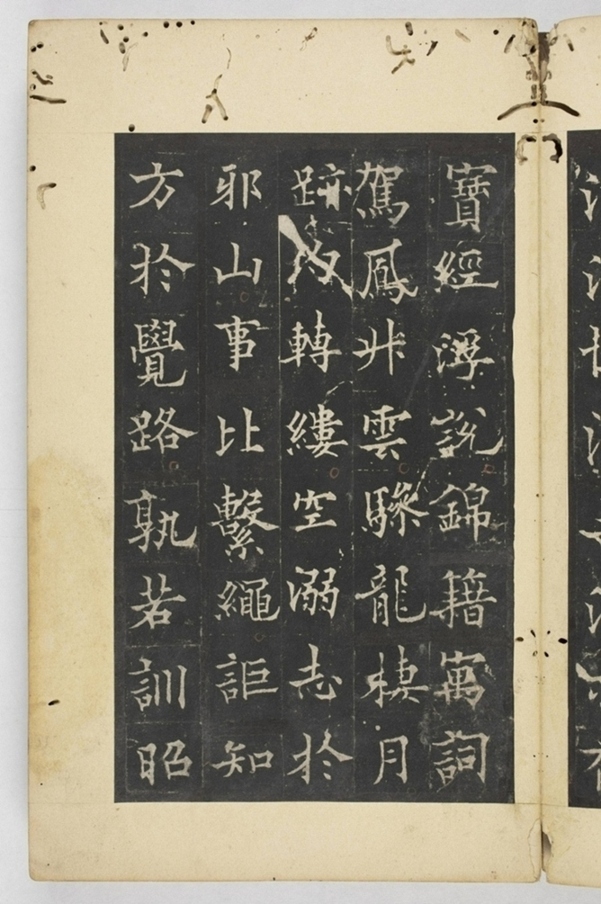 寶經浮說錦籍寓詞
駕鳳升雲驂龍棲月
跡轉縷空溺志於
邪山事比繫繩詎知
方於覺路孰若訓昭